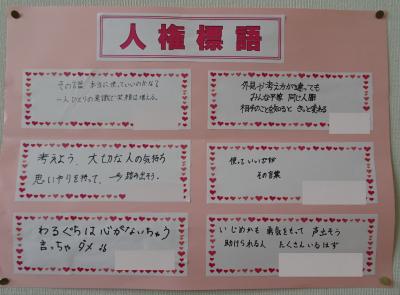 人権標語
その言葉 本当に使っていいのかな?
一人ひとりの意識で笑顔は増える。
外見や考え方が違っても
みんな平等 同じ人間
相手のことを知ると きっと変わる
考えよう、大切な人の気持ち
思いやりを持って、一歩踏み出そう。
使っていいですか
その言葉
わるぐちは心がないちゃう
言っちゃダメ
いじめかも 勇気をもって 声出そう
助けられる人 たくさんいるはず